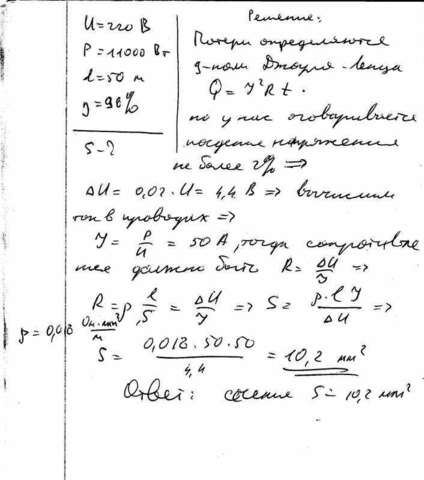 U = 220 В
P = 11000 Вт
l = 50 м
g = 98%
S - ?
Решение:
Потери определяются
з-ном Джоуля - Ленца
Q = I²Rt.
но у нас оговаривается
падение напряжения
не более 2% ⇒
ΔU = 0,02 · U = 4,4 В ⇒ вычислим
ток в проводах ⇒
I = P/U = 50 А, тогда сопротивле
ние должно быть R = ΔU/I ⇒
R = ρ l/S = ΔU/I ⇒ S = ρ·l·I/ΔU ⇒
ρ = 0,018 Ом·мм²/м
S = 0,018·50·50/4,4 = 10,2 мм²
Ответ: сечение S = 10,2 мм²